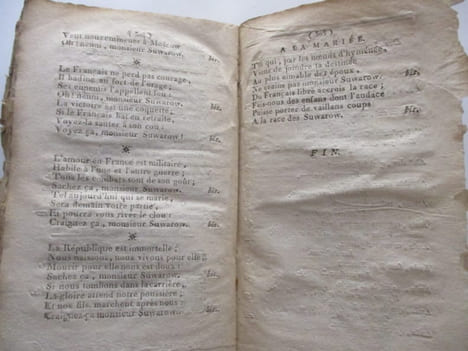 (304)
à Moscow
Oh! nenni, monsieur Suwarow. bis.
Le Français ne perd pas courage,
Il badine au fort de l'orage;
Ses ennemis l'appellent fou.
Oh! nenni, monsieur Suwarow. bis.
La victoire est une coquette,
Si le Français bat en retraite,
Voyez-la sauter à son cou:
Voyez ça, monsieur Suwarow! bis.
L'amour en France est militaire,
Habile à l'une et l'autre guerre;
Tous les combats sont de son goût;
Sachez ça, monsieur Suwarow. bis.
Tel aujourd'hui qui se marie,
Sera demain votre partie,
Et pourra vous river le clou:
Craignez ça, monsieur Suwarow! bis.
La République est immortelle;
Nous naissons, nous vivons pour elle;
Mourir pour elle nous est doux:
Sachez ça, monsieur Suwarow. bis.
Si nous tombons dans la carrière,
La gloire attend notre poussière;
Et nos fils marchent après nous:
Craignez ça monsieur Suwarow. bis.
(305)
A LA MARIÉE.
Toi qui, par les nœuds d'hyménée,
Viens de joindre ta destinée
Au plus aimable des époux,
Ne crains pas monsieur Suwarow. bis.
Du Français libre accrois la race;
Fais-nous des enfans dont l'audace
Puisse porter de vaillans coups
A la race des Suwarow. bis.
FIN.